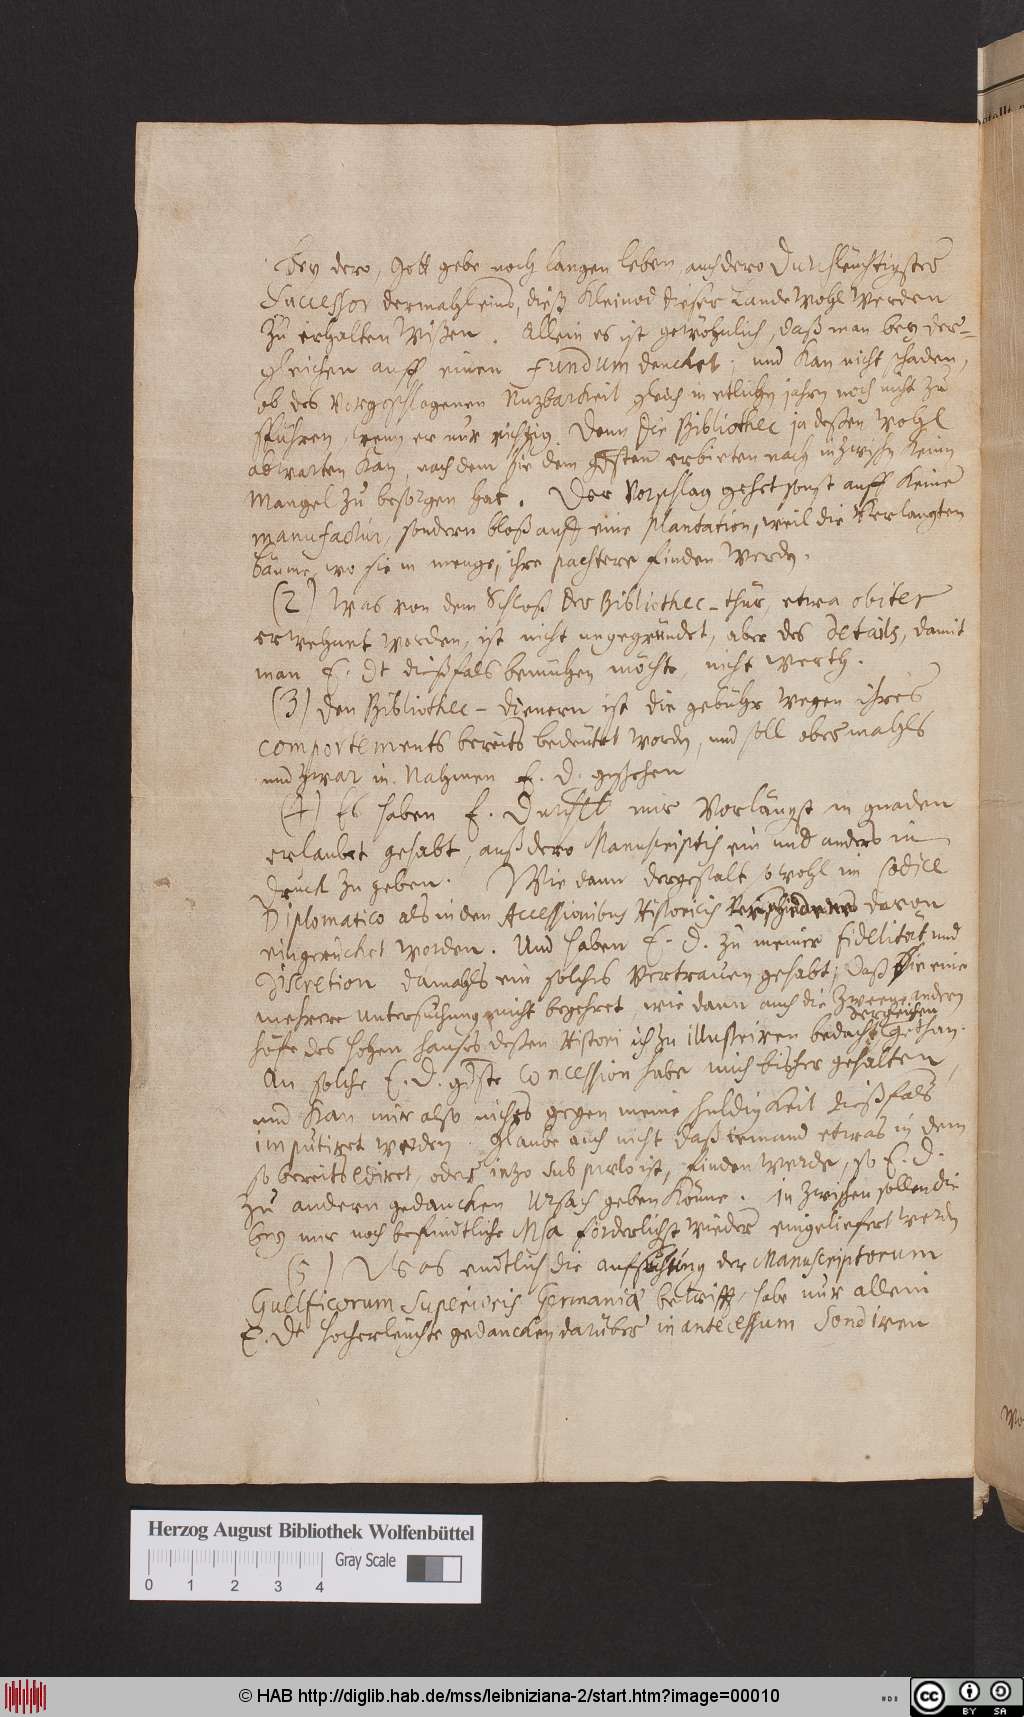 bey dero, Gott gebe noch langen leben, auch dero Durchleüchtigster
Successor dermahleins, dieß Kleinod dieser Lande wohl werden
zu erhalten wißen. Allein es ist gewöhnlich, daß man bey der-
gleichen auff einen fundum dencket; und kan nicht schaden,
ob des vorgeschlagenen Nuzbarkeit gleich in etlichen jahren noch nicht zu
spühren, wenn er nur richtig. Denn die Bibliothec ja deßen wohl
abwarten kan, nach dem sie dem gdsten erbieten nach inzwischen keinen
Mangel zu besorgen hat. Der Vorschlag gehet sonst auff keine
manufactur, sondern bloß auff eine plantation, weil die verlangten
bäume, wo sie in menge, ihre pachtere finden werden.
(2) Was von dem Schloß der Bibliothec-thür, etwa obiter
erwehnet worden, ist nicht ungegründet, aber des details, damit
man E. Dt dießfals bemühen möchte, nicht werth.
(3) Den Bibliothec-dienern ist die gebühr wegen ihres
comportements bereits bedeütet worden, und soll abermahls
und zwar in Nahmen E. D. geschehen
(4) Es haben E. Durchlt mir vorlängst in gnaden
erlaubet gehabt, auß dero Manuscriptis ein und anders in
Druck zu geben. Wie dann dergestalt sowohl im Codice
Diplomatico als in den Accessionibus Historicis verschiedenes davon
eingerücket worden. Und haben E. D. zu meiner fidelität und
Discretion damahls ein solches vertrauen gehabt, daß sie eine
mehrere untersuchung nicht begehret, wie dann auch die zweene andern
höfe des hohen hauses deßen Histori ich zu illustriren bedacht dergleichen gethan.
An solche E. D. gdste concession habe mich bisher gehalten,
und kan mir also nichts gegen meine schuldigkeit dießfals
imputiret werden. Glaube auch nicht daß iemand etwas in dem
so bereits ediret, oder iezo sub prelo ist, finden werde, so E. D.
zu andern gedancken ursach geben könne. Inzwischen sollen die
bey mir noch befindtliche Msa förderlichst wieder eingeliefert werden
(5) Was endtlich die aufsuchung der Manuscriptorum
Guelficorum Superioris Germaniae betrifft, habe nur allein
E. Dt hocherleüchte gedancken darüber in antecessum sondiren
Herzog August Bibliothek Wolfenbüttel
Gray Scale
0 1 2 3 4
© HAB http://diglib.hab.de/mss/leibniziana-2/start.htm?image=00010
cc BY SA